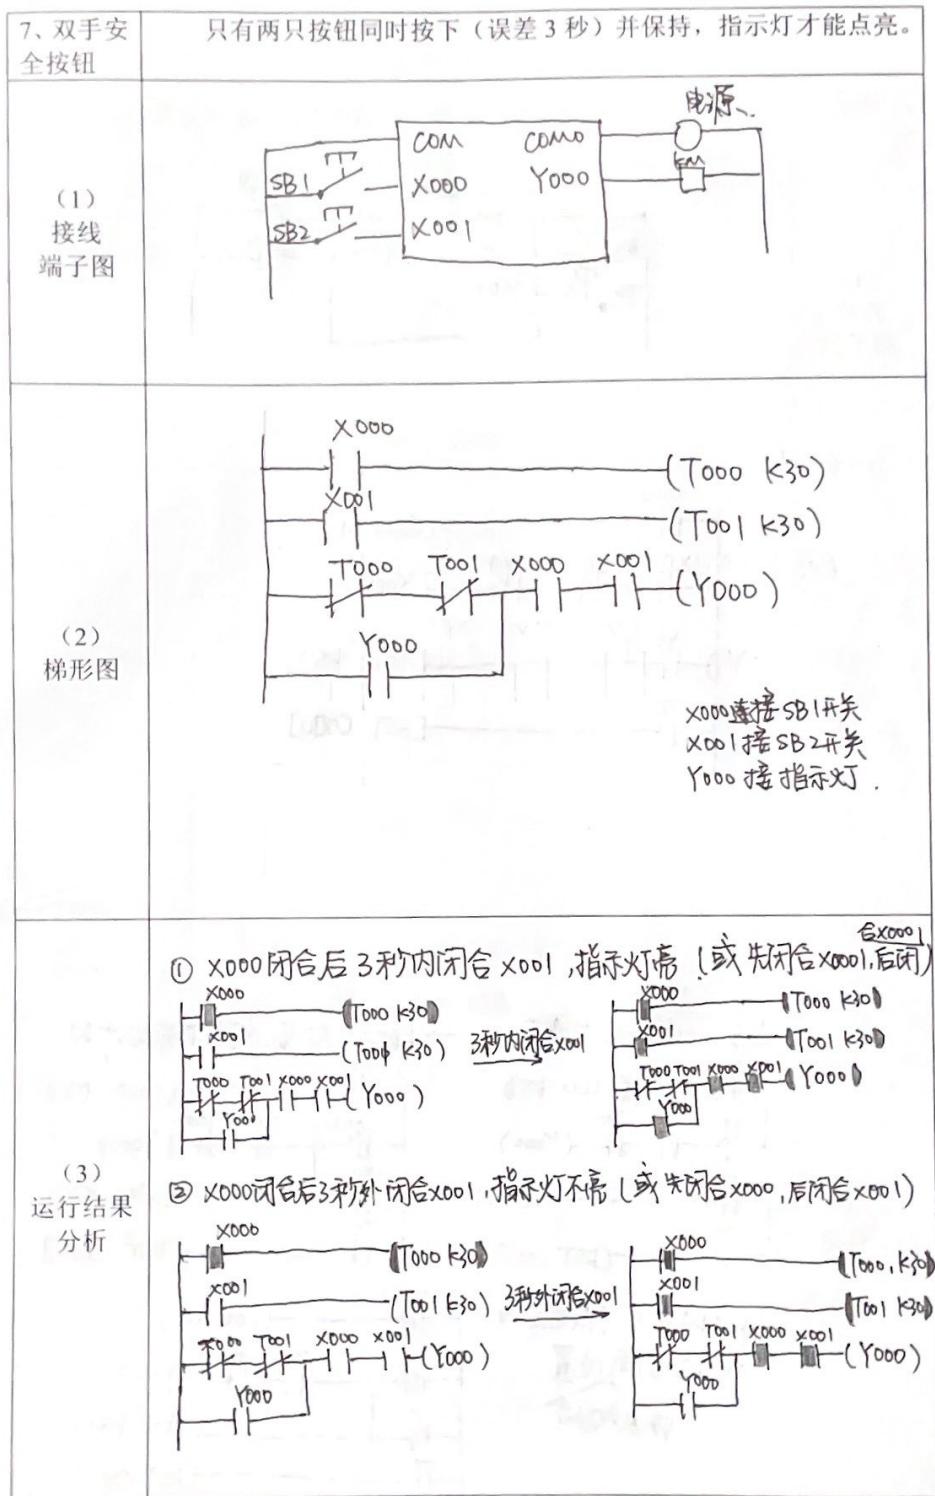 7、双手安
全按钮
只有两只按钮同时按下（误差 3 秒）并保持，指示灯才能点亮。
（1）
接线
端子图
电源
COM COM0
KM
SB1 X000 Y000
SB2 X001
（2）
梯形图
X000
(T000 K30)
X001
(T001 K30)
T000 T001 X000 X001
(Y000)
Y000
X000连接SB1开关
X001接SB2开关
Y000接指示灯.
（3）
运行结果
分析
合X0001
① X000闭合后3秒内闭合X001,指示灯亮(或先闭合X0001,后闭)
X000
(T000 K30)
X001
K30)
T000 T001 X000 X001
(Y000)
Y000
3秒内闭合X001
X000
(T000 K30)
X001
(T001 K30)
T000 T001 X000 X001
(Y000)
Y000
② X000闭合后3秒外闭合X001,指示灯不亮(或先闭合X000,后闭合X001)
X000
(T000 K30)
X001
(T001 K30)
T000 T001 X000 X001
(Y000)
Y000
3秒外闭合X001
X000
(T000,K30)
X001
(T001 K30)
T000 T001 X000 X001
(Y000)
Y000